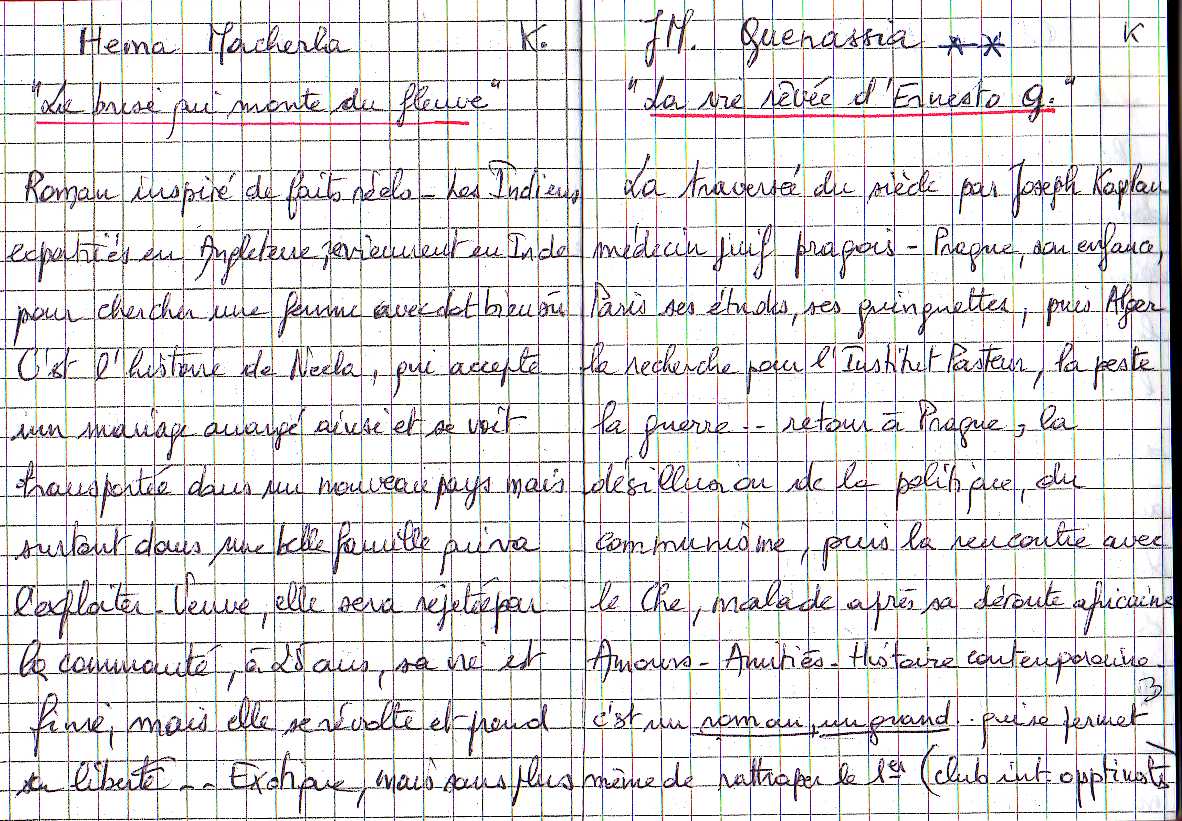 Hema Macherla K.
"La brise qui monte du fleuve"
Roman inspiré de faits réels - Les Indiens
expatriés en Angleterre, reviennent en Inde
pour chercher une femme avec dot bien sûr
C'est l'histoire de Neela, qui accepte
un mariage arrangé ainsi et se voit
transportée dans un nouveau pays mais
surtout dans une belle famille qui va
l'exploiter - Veuve, elle sera rejetée par
la communauté, à 25 ans, sa vie est
finie, mais elle se révolte et prend
sa liberté -- Exotique, mais sans plus
JM. Guenassia ** K
"La vie rêvée d'Ernesto G."
La traversée du siècle par Joseph Kaplan
médecin juif pragois - Prague, son enfance,
Paris ses études, ses guinguettes, puis Alger
la recherche pour l'Institut Pasteur, la peste
la guerre -- retour à Prague, la
désillusion de la politique, du
communisme, puis la rencontre avec
le Che, malade après sa déroute africaine
Amours - Amitiés - Histoire contemporaine.
c'est un roman, un grand. qui se permet
même de rattraper le 1er (club int